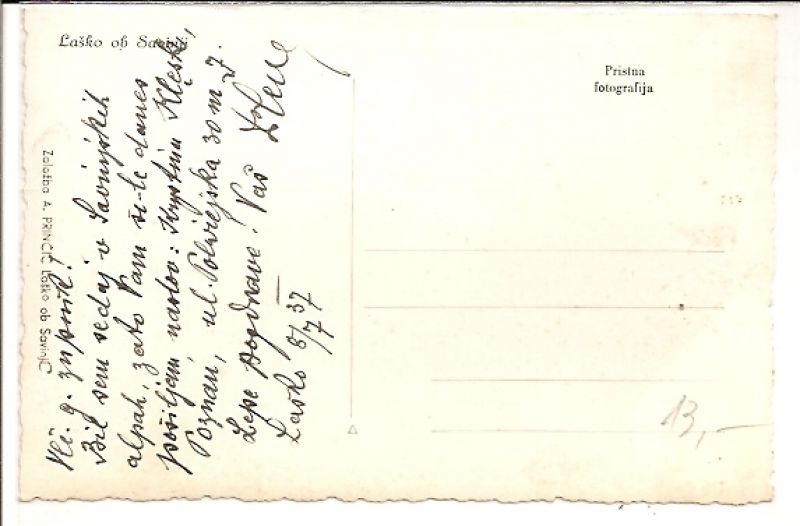 Laško ob Savinji
Pristna
fotografija
Založba A. PRINČIČ Laško ob Savinji
Vlč. g. župnik!
Bil sem sedaj v Savinjskih
alpah, zato Vam še-le danes
pošiljam naslov: Krystina
Poznań, ul. 30 m 7.
Lepe pozdrave! Vaš
Laško 8/7 37
13,-